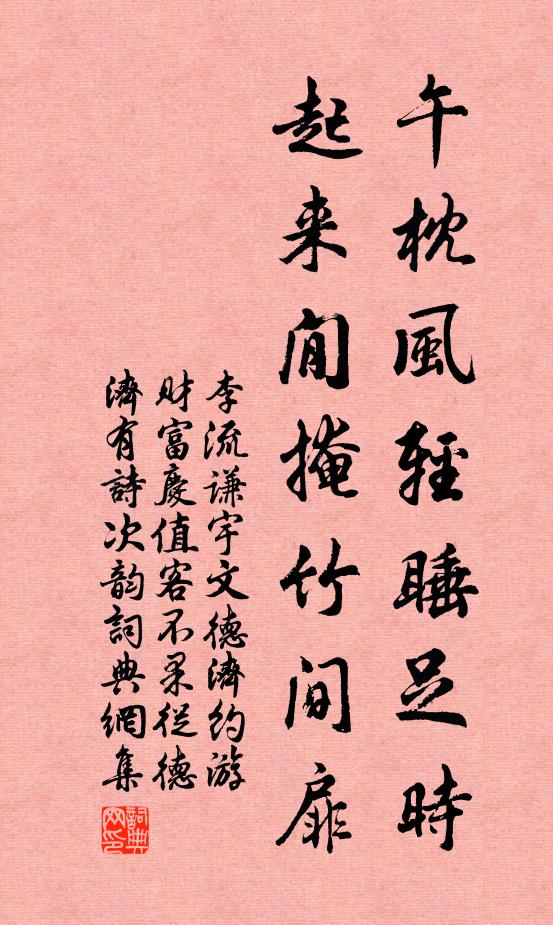 午枕風輕睡足時
起来閒掩竹间扉
李流谦宇文德濟約游
财富慶值客不果從德
濟有詩次韵詞典網集
詞典网印